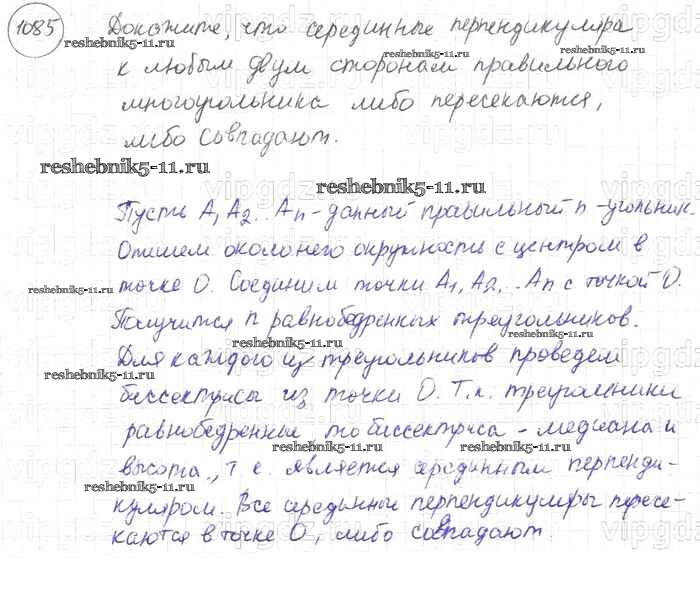 1085 Докажите, что серединные перпендикуляра
reshebnik5-11.ru reshebnik5-11.ru
к любым двум сторонам правильного
многоугольника либо пересекаются,
либо совпадают.
reshebnik5-11.ru
reshebnik5-11.ru
Пусть A₁A₂.. Aₙ - данный правильный n-угольник.
Опишем около него окружность с центром в
точке O. Соединим точки A₁, A₂, .. Aₙ с точкой O.
reshebnik5-11.ru reshebnik5-11.ru
Получится n равнобедренных треугольников.
reshebnik5-11.ru
Для каждого из треугольников проведем
reshebnik5-11.ru
биссектрисы из точки O. Т.к. треугольники
равнобедренные то биссектриса - медиана и
reshebnik5-11.ru reshebnik5-11.ru
высота, т.е. является серединным перпенди-
reshebnik5-11.ru
куляром. Все серединные перпендикуляры пересе-
reshebnik5-11.ru
каются в точке O, либо совпадают.